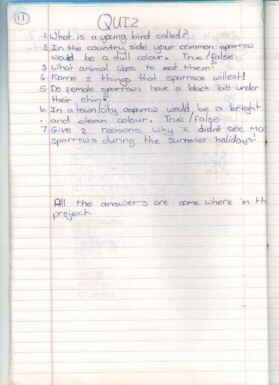 11
QUIZ
1 What is a young bird called?
2 In the country side your common sparrow
would be a dull colour. True/false
3 What animal likes to eat them?
4 Name 2 things that sparrows will eat!
5 Do female sparrows have a black bib under
their chin?
6 In a town/city sparrow would be a bright
and clean colour. True/false
7 Give 2 reasons why I didnt see
sparrows during the summer holidays!
All the answers are some where in th
project